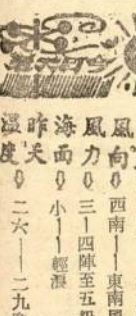 風向⇩西南——東南風
風力⇩三—四陣至五級
海面⇩小——輕浪
昨天
溫度⇩二六——二九度